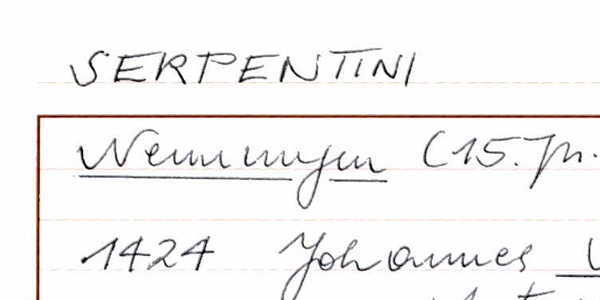 SERPENTINI
Nenningen (15. Jh.
1424 Johannes